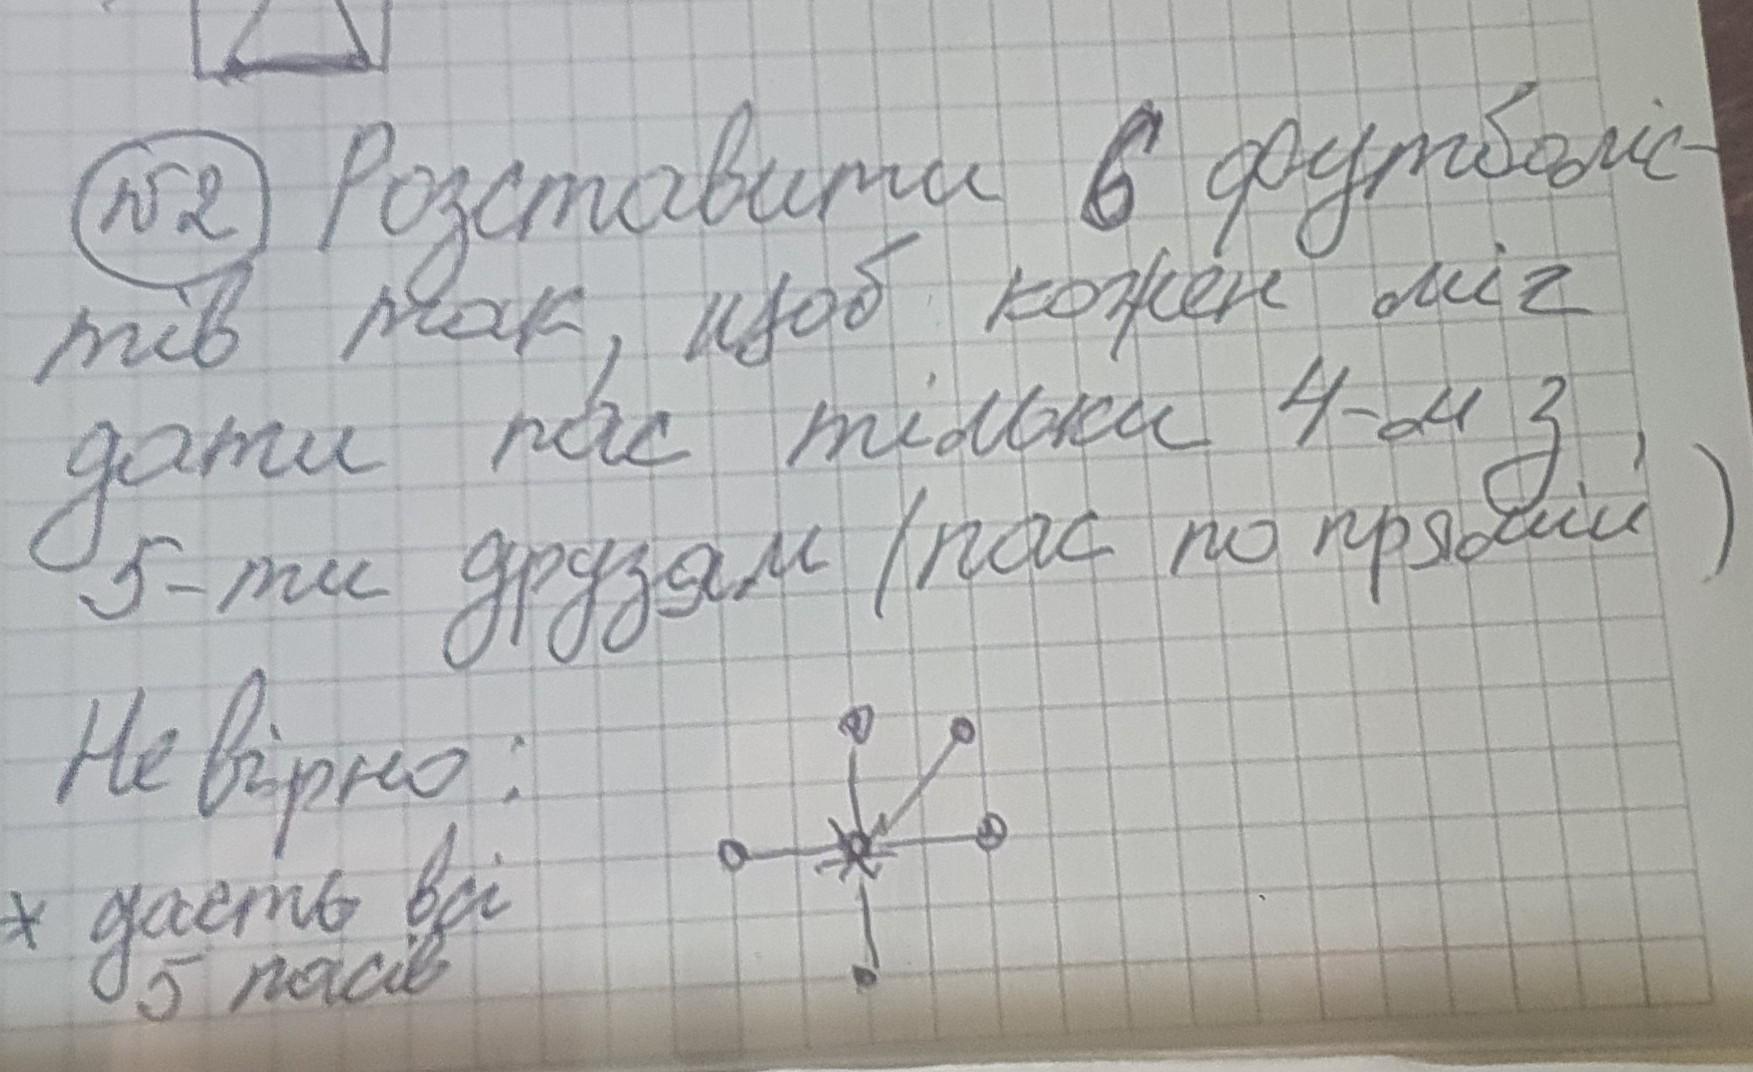 №2 Розставити 6 футболіс-
тів так, щоб кожен міг
дати пас тільки 4-м з
5-ти друзям (пас по прямій)
Не вірно:
* дасть всі
5 пасів